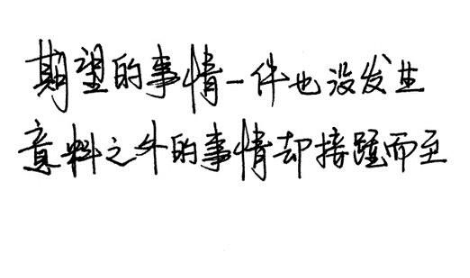 期望的事情一件也没发生
意料之外的事情却接踵而至